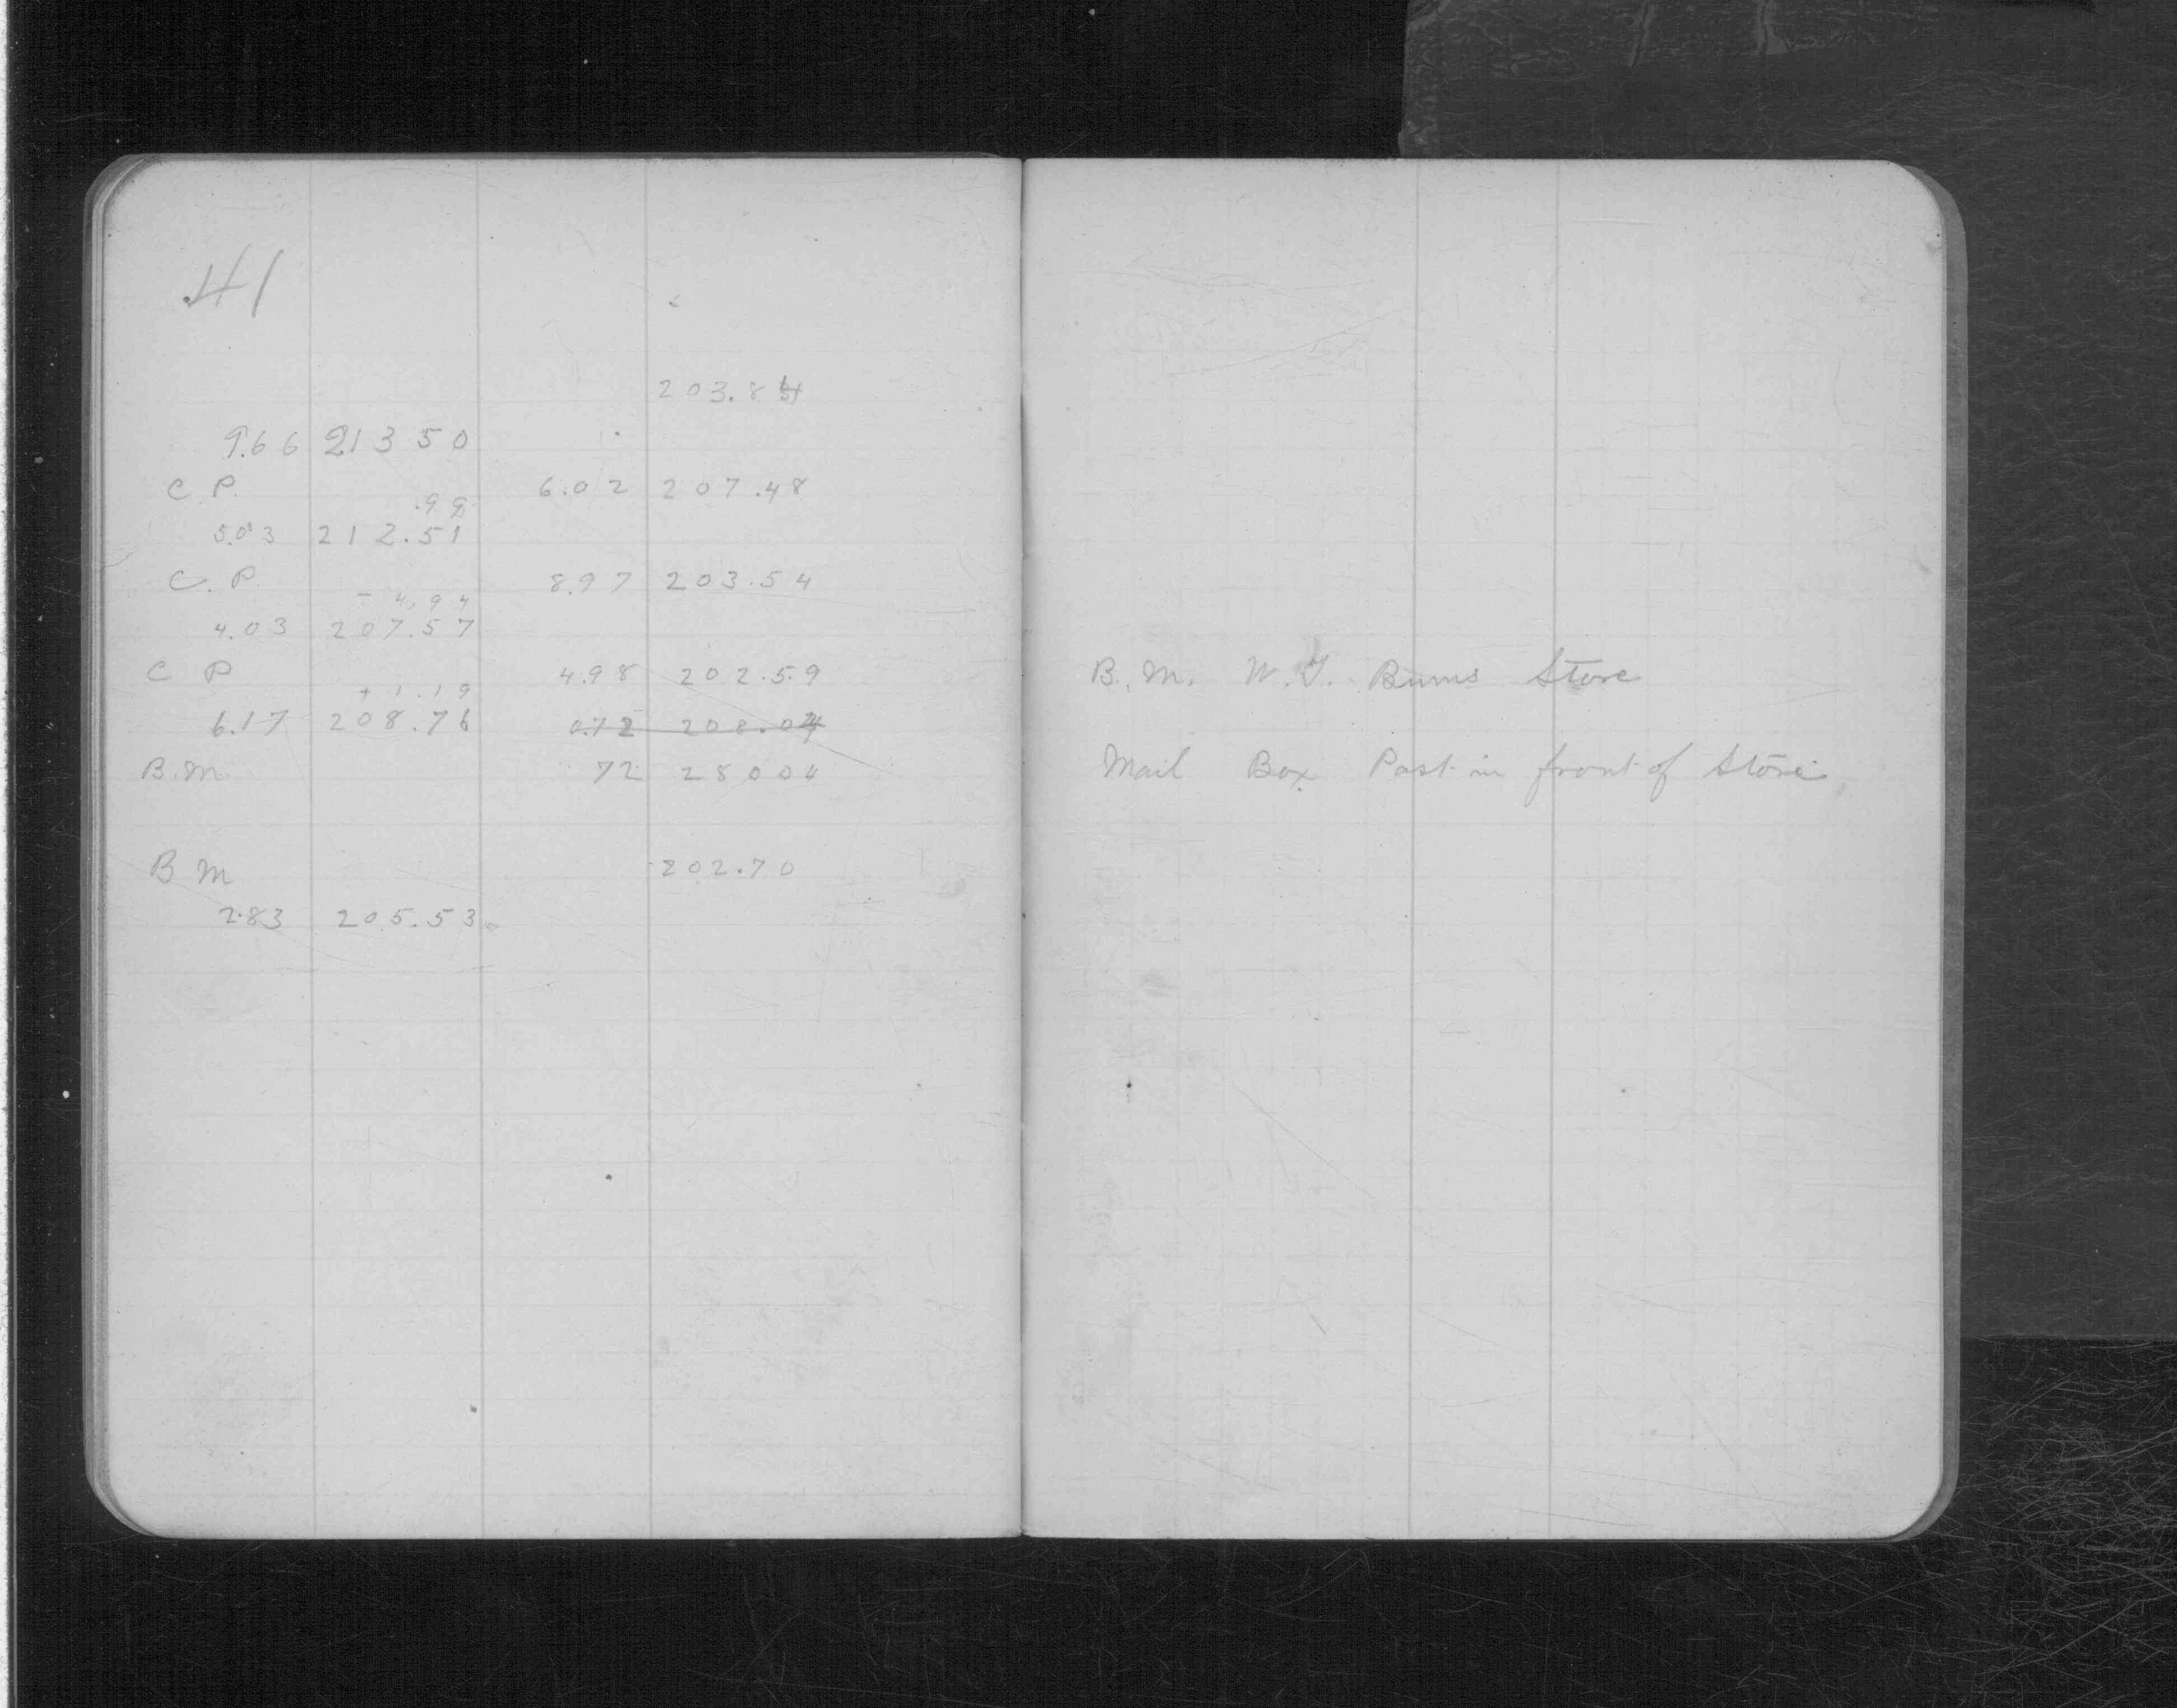 41
203.84
9.66 213 50
C. P. 6.02 207.48
.99
5.03 212.51
C. P. 8.97 203.54
- 4.94
4.03 207.57
C P 4.98 202.59
+ 1.19
6.17 208.76 0.72 208.04
B. M. 72 28004
B M 202.70
2.83 205.53
B. M. W. J. Burns Store
Mail Box Post in front of Store